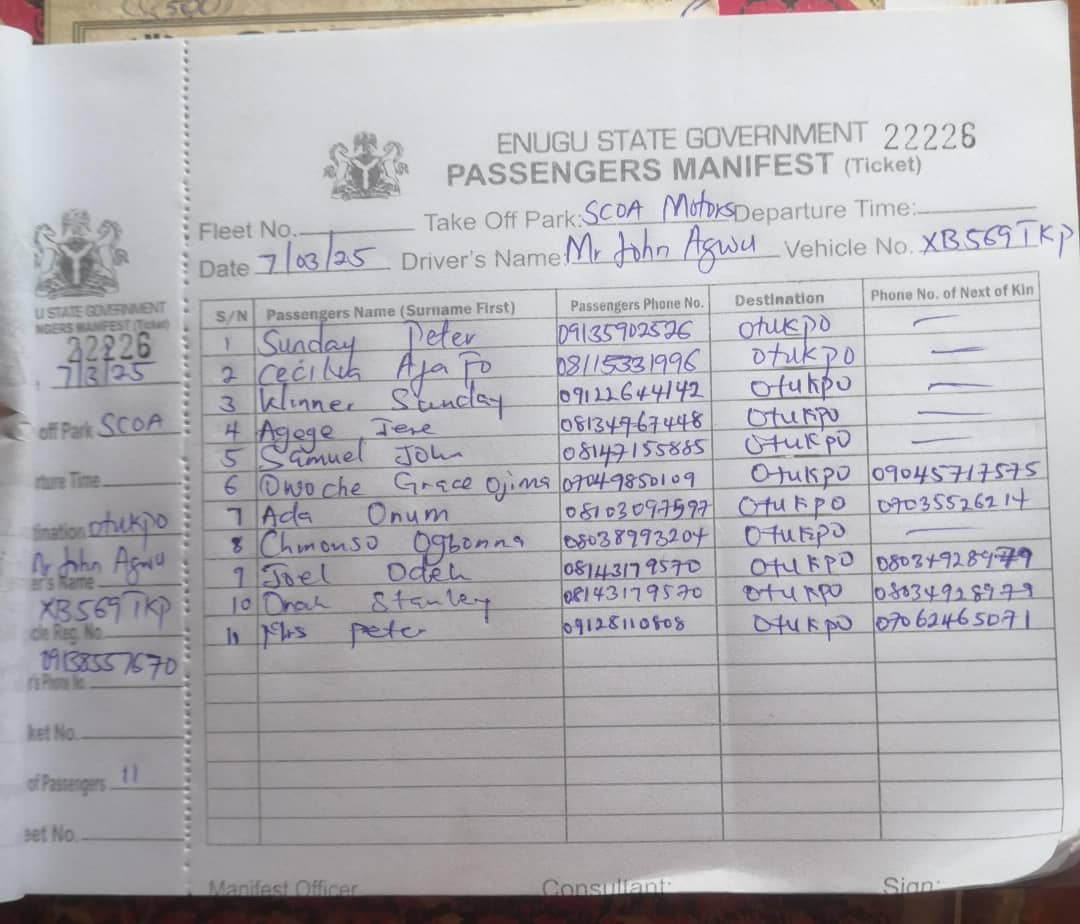 (500)
ENUGU STATE GOVERNMENT 22226
PASSENGERS MANIFEST (Ticket)
Fleet No. Take Off Park: SCOA Motors Departure Time:
Date 7/03/25 Driver's Name: Mr John Agwu Vehicle No. XB569TKP
S/N Passengers Name (Surname First) Passengers Phone No. Destination Phone No. of Next of Kin
1 Sunday Peter 09135902526 Otukpo —
2 Cecilia 08115331996 Otukpo —
3 Winner Sunday 09122644142 Otukpo —
4 Agege Jere 08134967448 Otukpo —
5 Samuel John 08147155865 Otukpo —
6 Owoche Grace Ojima 07049850109 Otukpo 09045717575
7 Ada Onum 08103097597 Otukpo 09035526214
8 Chinonso Ogbonna 08038993204 Otukpo —
9 Joel Odeh 08143179570 Otukpo 08034928979
10 Onah Stanley 08143179570 Otukpo 08034928979
11 Mrs Peter 09128110808 Otukpo 07062465071
Manifest Officer Consultant: Sign:
U STATE GOVERNMENT
NGERS MANIFEST (Ticket)
22226
7/3/25
off Park SCOA
rture Time
tination Otukpo
Mr John Agwu
er's Name
XB569TKP
cle Reg. No.
09138557670
r's Phone No.
ket No.
of Passengers 11
eet No.